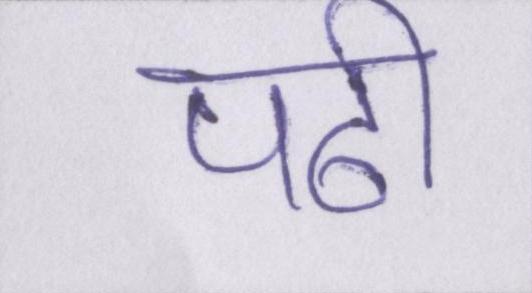 पढी